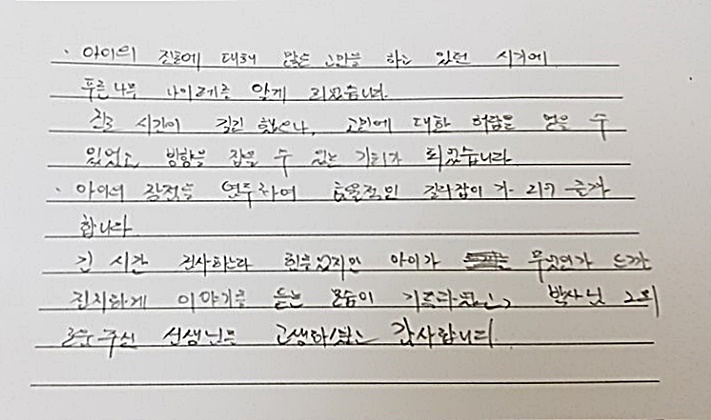 · 아이의 진로에 대해 많은 고민을 하고 있던 시기에
푸른나무 나이테를 알게 되었습니다.
시간이 길긴 했으나, 고민에 대한 해답을 얻을 수
있었고, 방향을 잡을 수 있는 기회가 되었습니다
· 아이의 강점을 연두하여 효율적인 길라잡이가
합니다
긴 시간 검사하느라 힘들었지만 아이가 무엇인가
진지하게 이야기를 듣는 모습이 박사님
도움주신 선생님도 고생하셨고 감사합니다.